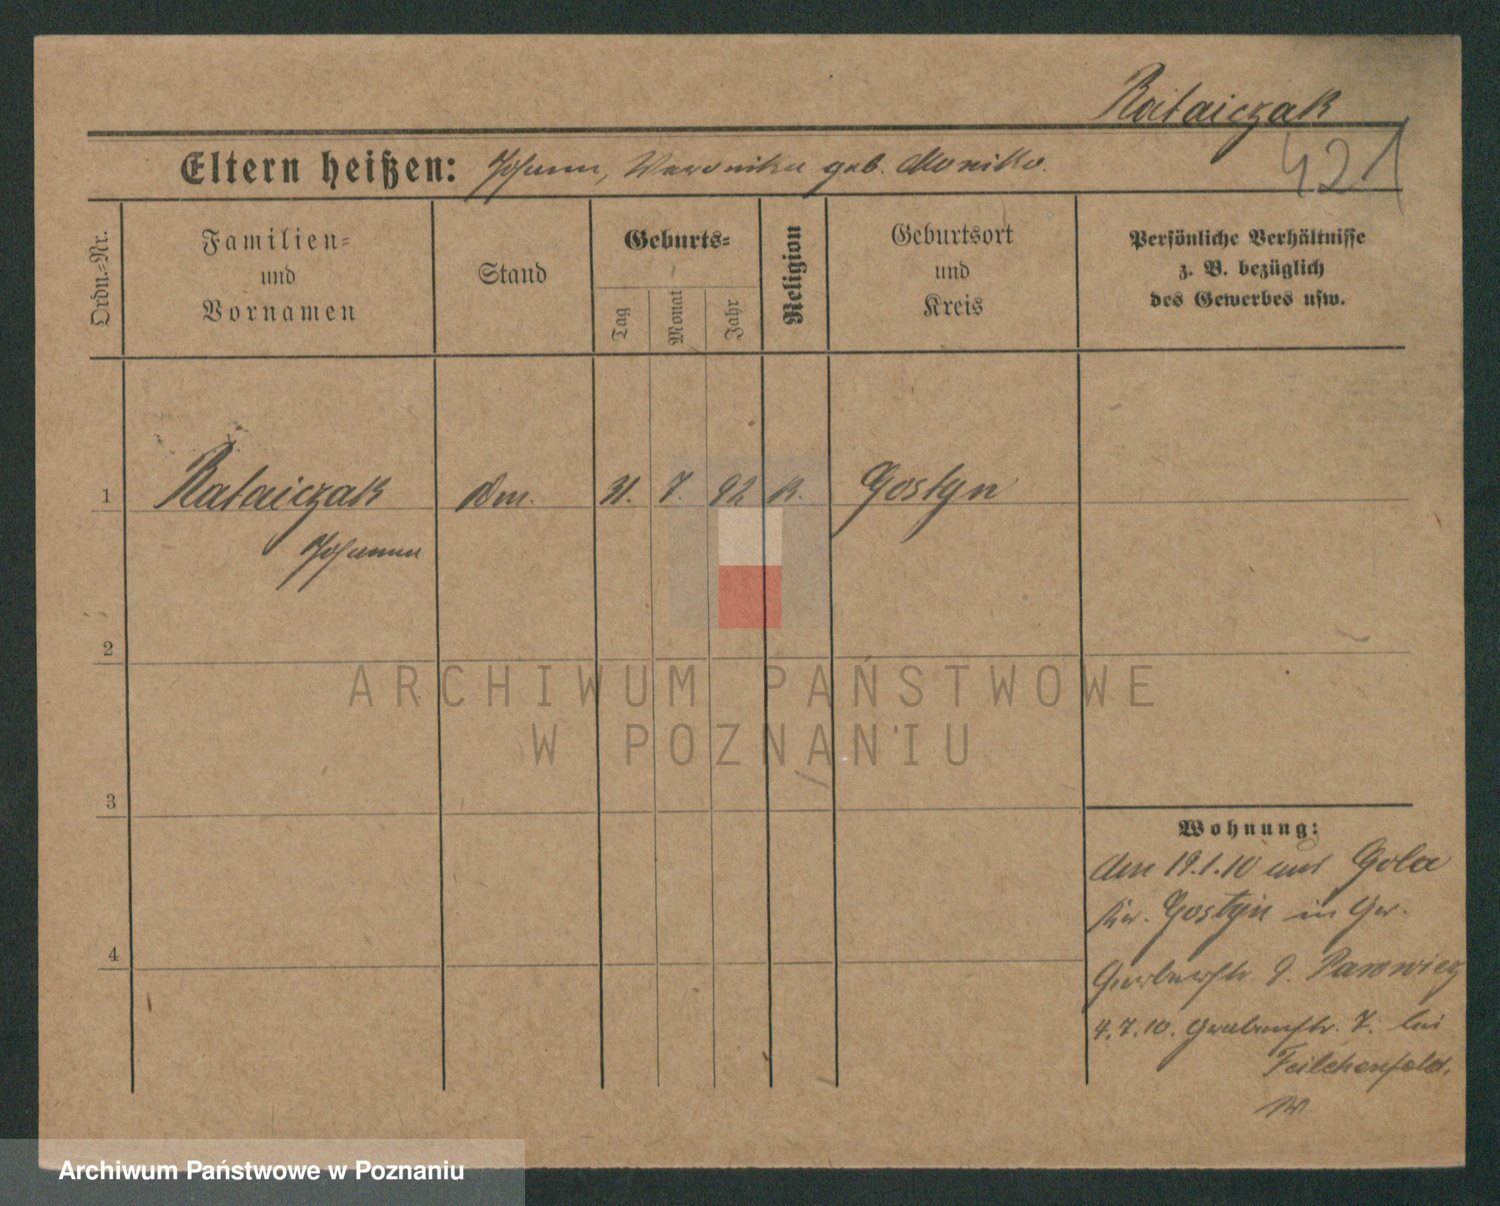 Rataiczak
Eltern heißen: Johann, Veronika geb. Moniko.
421
Ordn.=Nr.
Familien=
und
Vornamen
Stand
Geburts=
Tag
Monat
Jahr
Religion
Geburtsort
und
Kreis
Persönliche Verhältnisse
z. B. bezüglich
des Gewerbes usw.
1 Rataiczak 31. 7. 92 K. Gostyn
Johann
2
3
4
ARCHIWUM PAŃSTWOWE
W POZNANIU
Wohnung:
Am 19.1.10 aus Gola
Kr. Gostyn in Gr.
Gerberstr. 9.
4.7.10. Grabenstr. 7. bei
Feilchenfeld.
Archiwum Państwowe w Poznaniu